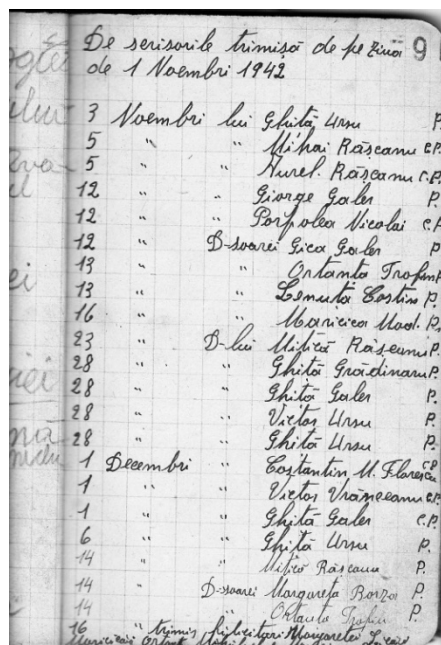 De serisorile trimisă de pe ziua 9
de 1 Noembri 1942
3 Noembri lui Ghită Ursu P.
5 " " Mihai Răşcanu C.P.
5 " " Aurel. Răşcanu C.P.
12 " " Giorge Galer P.
12 " " Porfolea Nicolai C.P.
12 " D-soarei Gica Galer P
13 " " Ortanta Trofin P
13 " " Lenuta Costin P.
16 " " Maricica Mad. P.
23 " D-lui Mitică Răşcanu P.
28 " " Ghită Grădinaru P.
28 " " Ghită Galer P.
28 " " Victor Ursu P.
28 " " Ghită Ursu P.
1 Decembri " Costantin M. Florescu C.P.
1 " " Victor Vrânceanu C.P.
1 " " Ghită Galer C.P.
6 " " Ghită Ursu P.
14 " " Mitică Răscanu P.
14 " D-soarei Margareta Barza P.
14 " " Ortanta Trofin P.
16 " trimis filicitari Margaretei